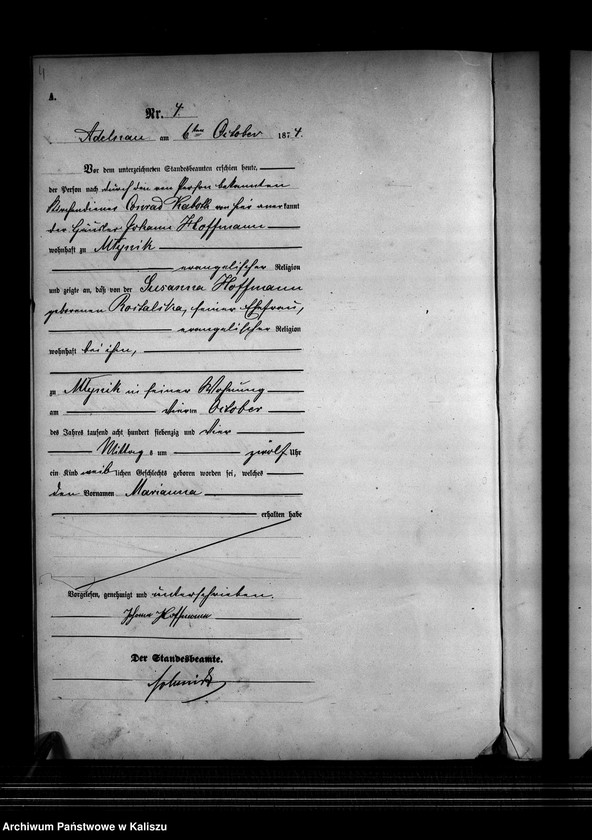 4
A.
Nr. 4.
Adelnau am 6ten October 1874.
Vor dem unterzeichneten Standesbeamten erschien heute,
der Person nach durch den von Person bekannten
Kirchendiener Conrad anerkannt
der Häusler Johann Hoffmann
wohnhaft zu Młynik
evangelischer Religion
und zeigte an, daß von der Susanna Hoffmann
geborenen, seiner Ehefrau,
evangelischer Religion
wohnhaft bei ihm,
zu Młynik in seiner Wohnung
am vierten October
des Jahres tausend acht hundert siebenzig und vier
Mittags um zwölf Uhr
ein Kind weiblichen Geschlechts geboren worden sei, welches
den Vornamen Marianna
erhalten habe
Vorgelesen, genehmigt und unterschrieben.
Johann Hoffmann
Der Standesbeamte.
Archiwum Państwowe w Kaliszu